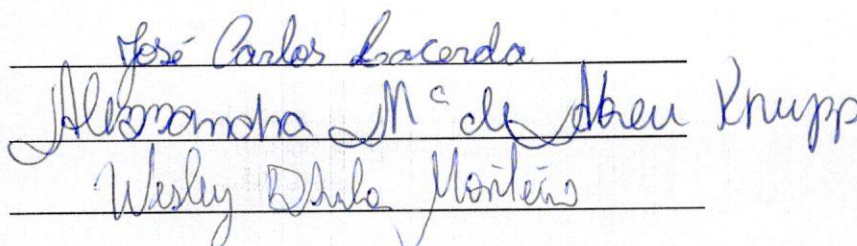 José Carlos Lacerda
Alessandra Mª de Abreu Knupp
Wesley Monteiro